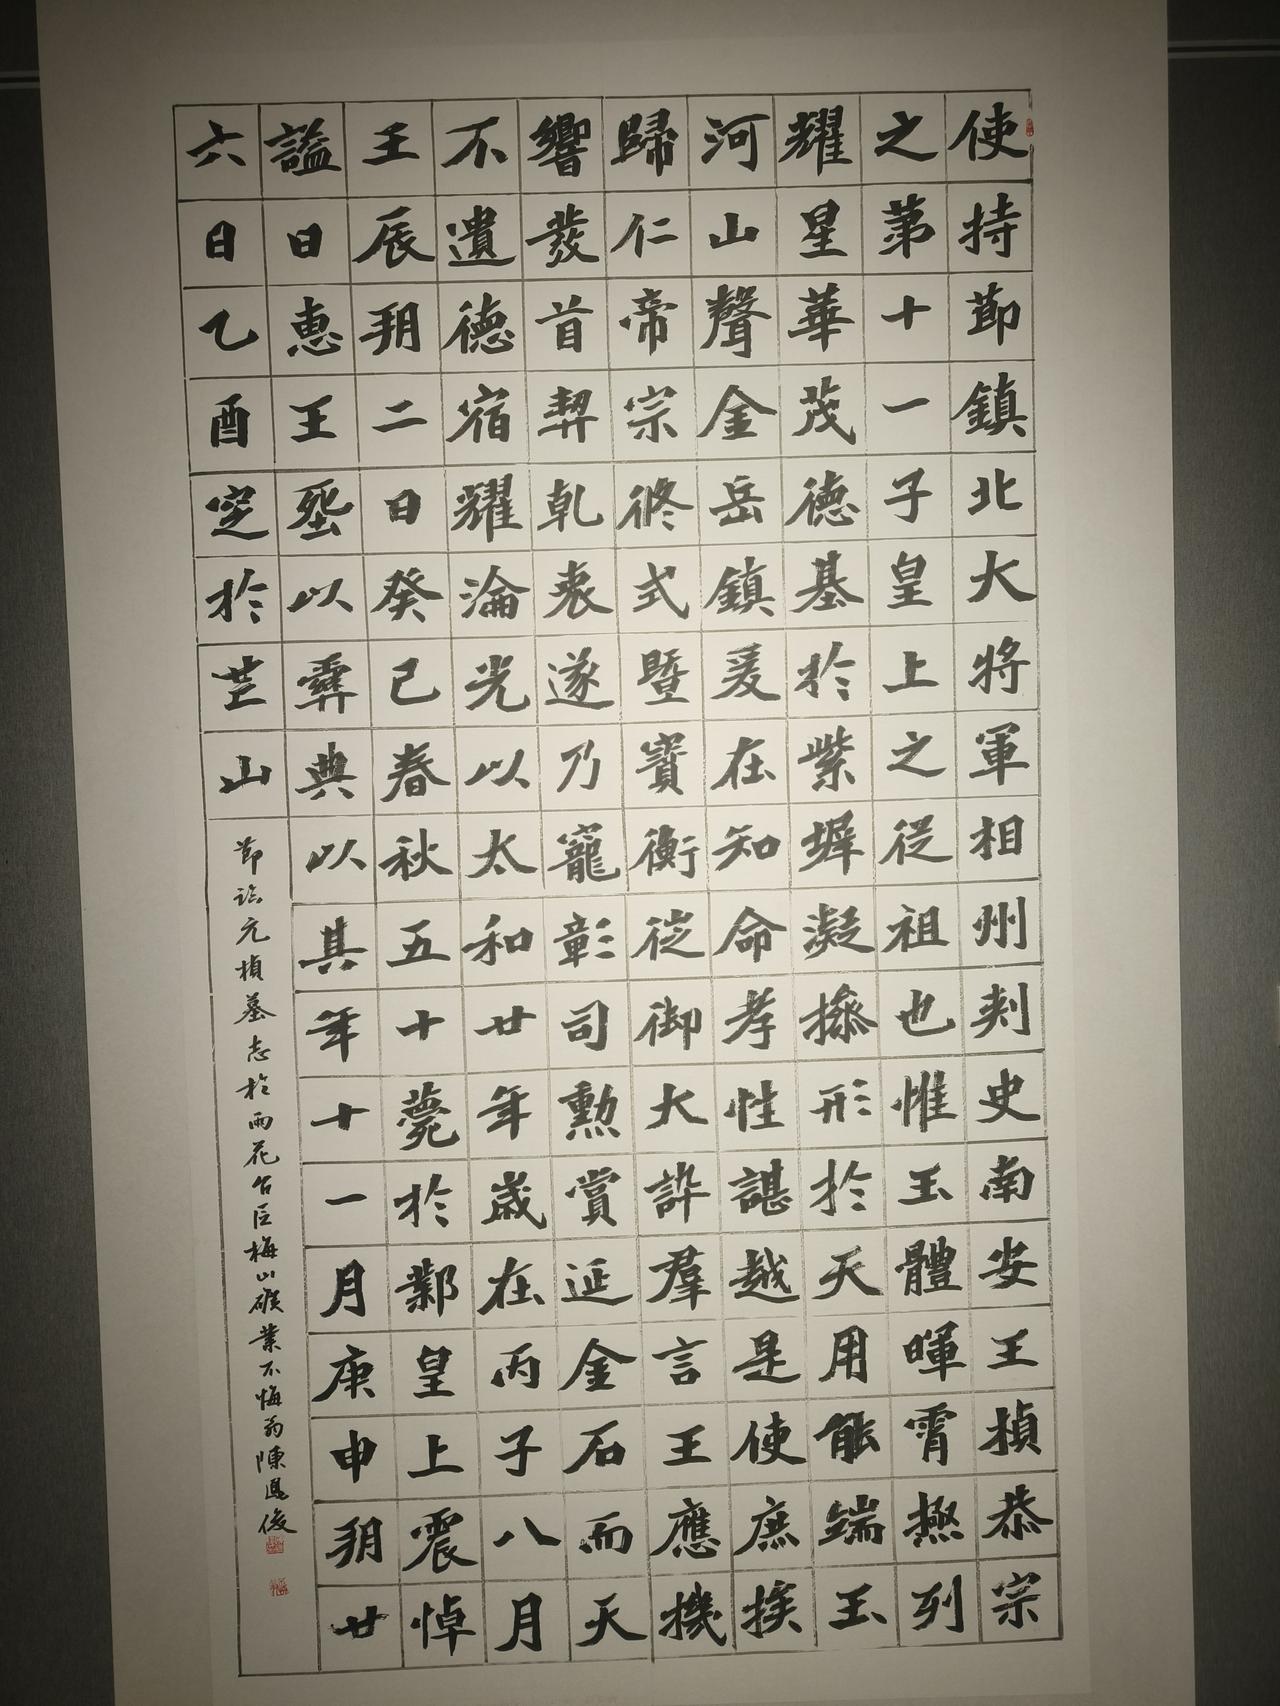 使持節鎮北大將軍相州刾史南安王楨恭宗
之苐十一子皇上之從祖也惟王體暉霄極列
耀星華茂德基於紫墀凝操形於天用能端玉
河山聲金岳鎮爰在知命孝性諶越是使庶族
歸仁帝宗攸式暨寶衡從御大誶羣言王應機
響發首契乾衷遂乃寵彰司勲賞延金石而天
不遺德宿耀淪光以太和廿年歲在丙子八月
壬辰朔二日癸巳春秋五十薨於鄴皇上震悼
謚曰惠王塟以彝典以其年十一月庚申朔廿
六日乙酉窆於芒山
節臨元楨墓志於雨花台區梅山礦業不悔翁陳恩俊